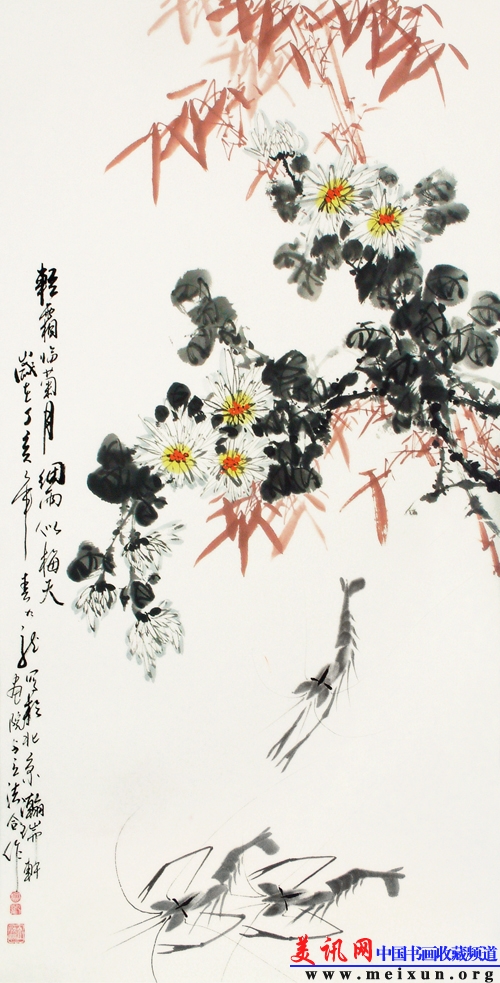 轻霜临菊月 细雨似梅天
岁在丁亥年春
写于北京瀚瑞轩
画院 合作
美讯网 中国书画收藏频道
www.meixun.org